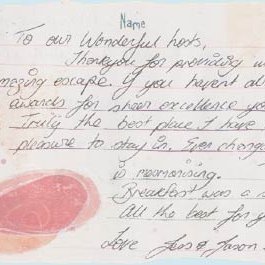 Name
To our Wonderful hosts,
Thankyou for providing
amazing escape. If you havent
awards for sheer excellence
Truly the best place I have
pleasure to stay in. Ever
is mesmorising.
Breakfast was a
All the best for
Love Jason